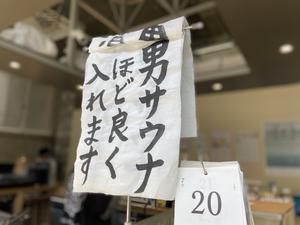 男サウナ
ほど良く
入れます
20